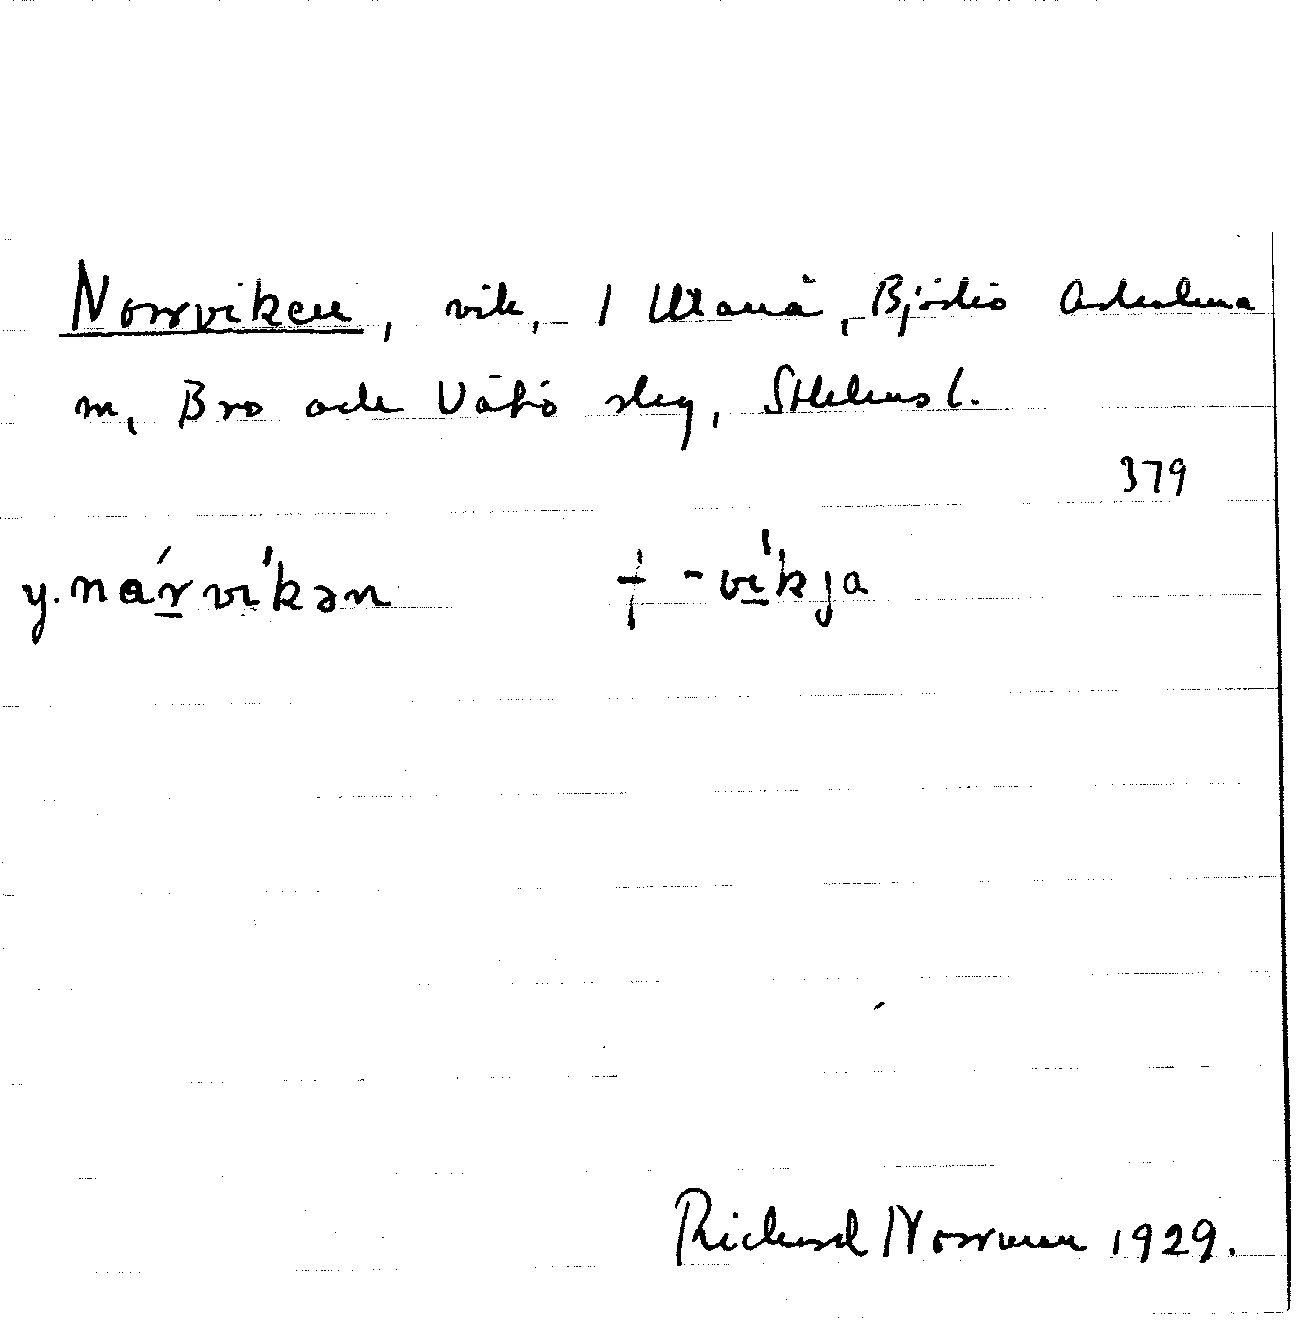 Norrviken, vik, 1 Utanå, Björkö Arholma
m, Bro och Vätö skg, Sthlms l.
379
y. nárvíkən † -víkja
Richard Norrman 1929.